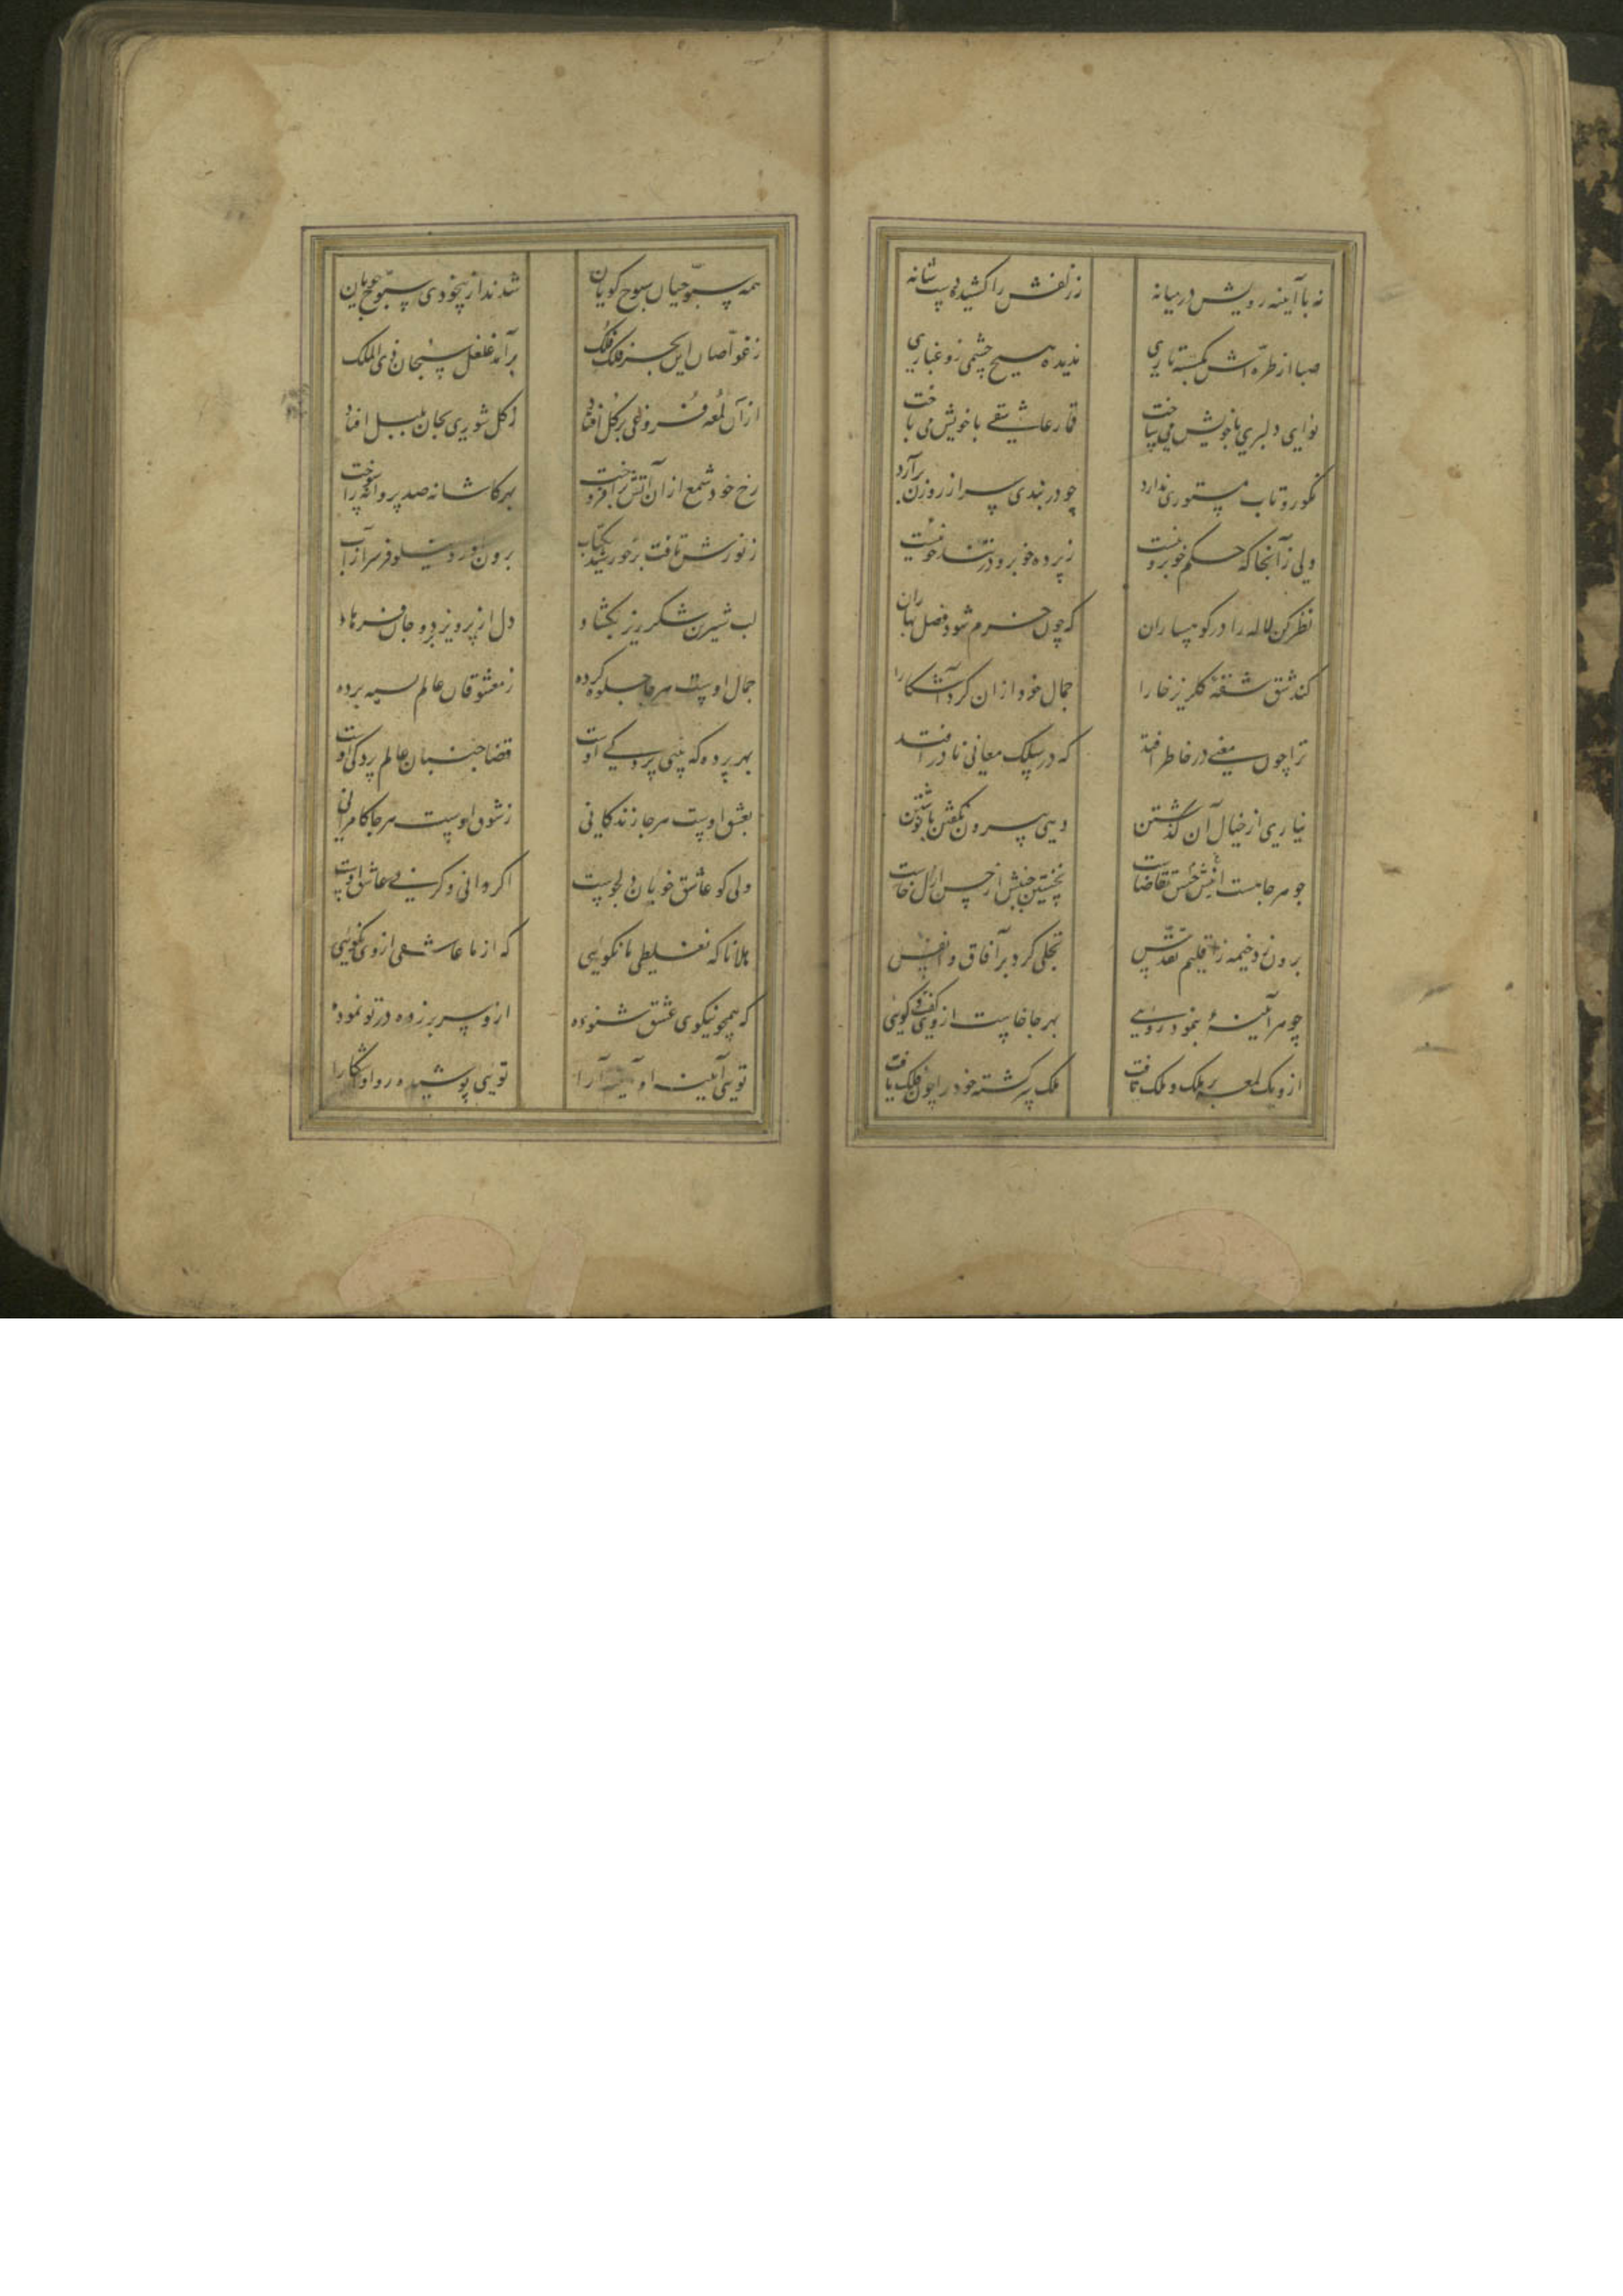 نه با آیینه رویش در میانه
ز زلفش را کشیده دست شانه
صبا از طره‌اش نگسسته تاری
ندیده هیچ چشمی زو غباری
نوای دلبری با خویش می ساخت
قمار عاشقی با خویش می باخت
نکورو تاب مستوری ندارد
چو در بندی سر از روزن برآرد
ولی زآنجا که حکم خوبروییست
ز پرده خوبرو در تند خوییست
نظر کن لاله را در کوهساران
که چون خرم شود فصل بهاران
کند شق شقهٔ گلریز خارا
جمال خود از ان کرد آشکارا
ترا چون معنیی در خاطر افتد
که در سلک معانی نادر افتد
نیاری از خیال آن گذشتن
دهی بیرون نگفتن یا نوشتن
چو هر جا هست حسن اینش تقاضاست
نخستین جنبش از حسن ازل خاست
برون زد خیمه ز اقلیم تقدس
تجلی کرد بر آفاق و انفس
چو هر آیینهٔ بنمود رویی
بهر جا خاست از وی گفت و گویی
ازو یک لمعه بر ملک و ملک تافت
ملک سرگشته خود را چون فلک یافت
همه سبوحیان سبوح گویان
شدند از بیخودی سبوح جویان
ز غواصان این بحر فلک فلک
برآمد غلغل سبحان ذی الملک
از آن لمعه فروغی بر گل افتاد
ز گل شوری بجان بلبل افتاد
رخ خود شمع از آن آتش برافروخت
بهر کاشانه صد پروانه را سوخت
ز نورش تافت بر خورشید یک تاب
برون آورد نیلوفر سر از آب
لب شیرین شکرریز بگشاد
دل از پرویز برد و جان فرهاد
جمال اوست هر جا جلوه کرده
ز معشوقان عالم بسته پرده
بهر پرده که بینی پردگی اوست
قضا جنبان عالم پردگی اوست
بعشق اوست هر جا زندگانی
ز شوق اوست هر جا کامرانی
دلی کو عاشق خوبان دلجوست
اگر دانی وگر نی عاشق اوست
هلا تا که نغلطی تا نگویی
که از ما عاشقی از وی نکویی
که همچو نیکویی عشق ستوده
ازو سر برزده در تو نموده
تویی آیینه او آیینه آرا
تویی پوشیده و او آشکارا